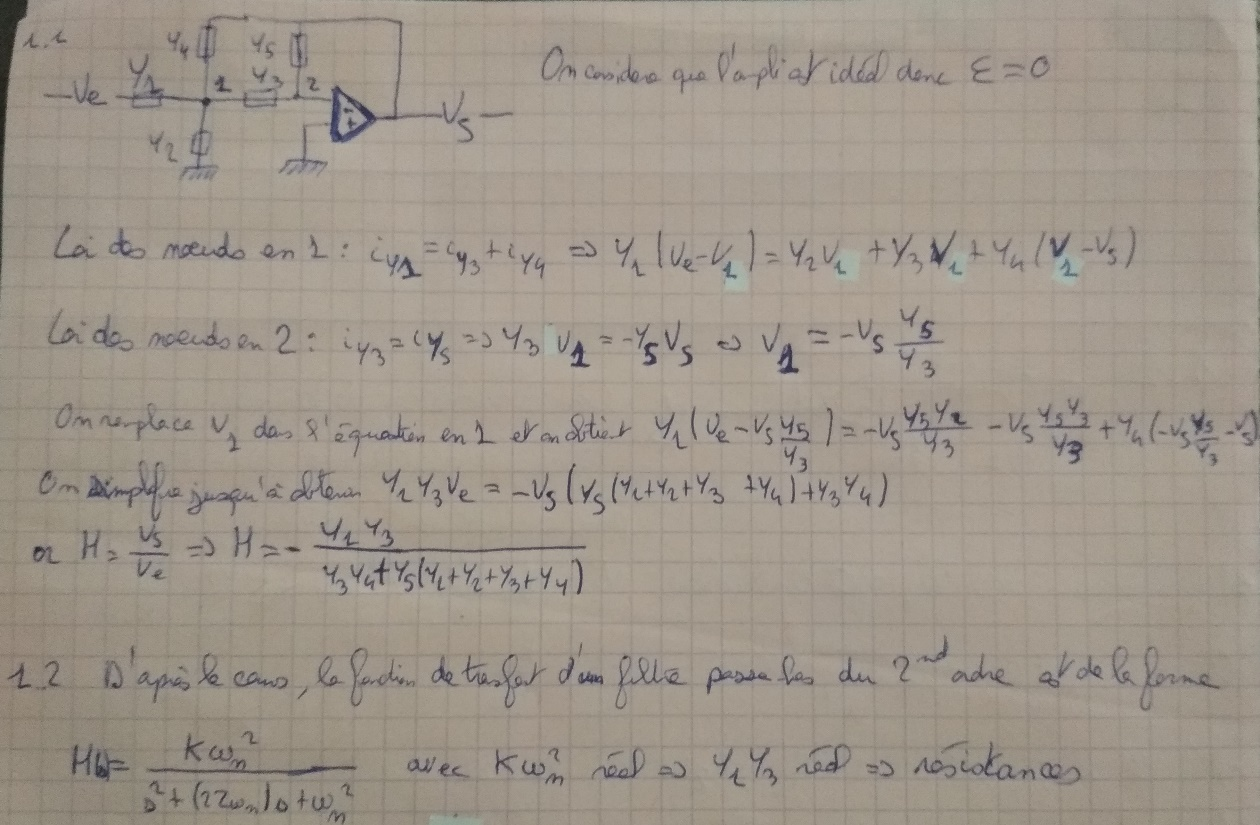 1.1
Y4 Y5
Y1 1 Y3 2
Ve
Y2
VS
On considere que l'ampli est idéal donc ε=0
Loi des noeuds en 1 : iY1 = iY3 + iY4 => Y1 (Ve-V1) = Y2V1 + Y3V1 + Y4 (V1-VS)
Loi des noeuds en 2 : iY3 = iY5 => Y3 V1 = -Y5 VS => V1 = -VS Y5/Y3
On remplace V1 dans l'équation en 1 et on obtient Y1 (Ve - VS Y5/Y3) = -VS Y5Y2/Y3 - VS Y5Y3/Y3 + Y4 (-VS Y5/Y3 - VS)
On simplifie jusqu'à obtenir Y1Y3Ve = -VS (Y5 (Y1+Y2+Y3 +Y4) + Y3Y4)
or H = VS/Ve => H = - Y1Y3/(Y3Y4+Y5(Y1+Y2+Y3+Y4))
1.2 D'après le cours, la fonction de transfert d'un filtre passe bas du 2nd ordre est de la forme
H = Kωn²/(s²+(2Zωn)s+ωn²) avec Kωn² réel => Y1Y3 réel => résistances